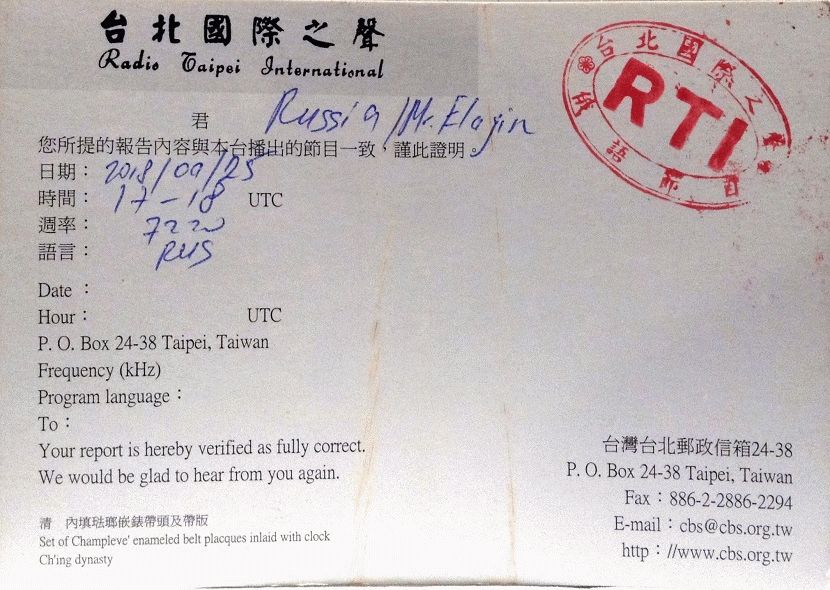 台北國際之聲
Radio Taipei International
君 Russia/Mr. Elagin
您所提的報告內容與本台播出的節目一致，謹此證明。
日期：2018/09/25
時間：17-18 UTC
週率：7220
語言：RUS
Date：
Hour： UTC
P. O. Box 24-38 Taipei, Taiwan
Frequency (kHz)
Program language：
To：
Your report is hereby verified as fully correct.
We would be glad to hear from you again.
清 內填琺瑯嵌錶帶頭及帶版
Set of Champleve' enameled belt placques inlaid with clock
Ch'ing dynasty
台北國際之聲
RTI
俄語節目
台灣台北郵政信箱24-38
P. O. Box 24-38 Taipei, Taiwan
Fax：886-2-2886-2294
E-mail：cbs@cbs.org.tw
http：//www.cbs.org.tw